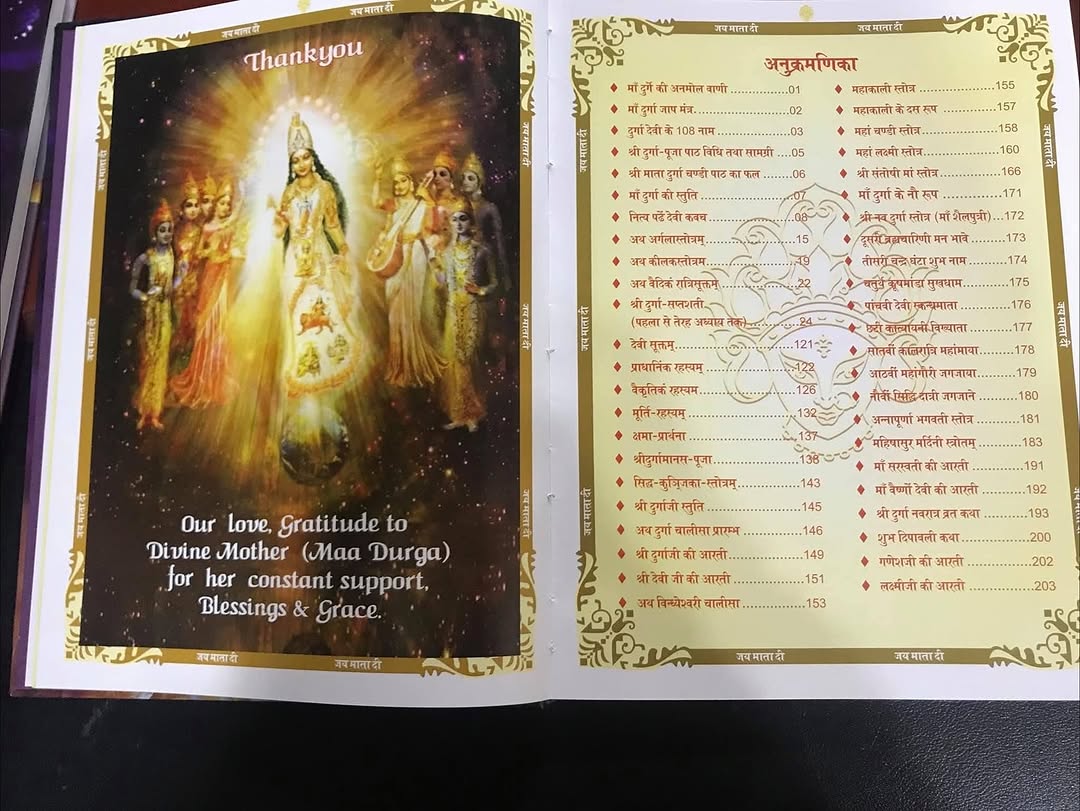 जय माता दी
जय माता दी
Thankyou
Our love, Gratitude to
Divine Mother (Maa Durga)
for her constant support,
Blessings & Grace.
जय माता दी
जय माता दी
जय माता दी
जय माता दी
जय माता दी
जय माता दी
जय माता दी
जय माता दी
जय माता दी
जय माता दी
अनुक्रमणिका
माँ दुर्गे की अनमोल वाणी ...............01
माँ दुर्गा जाप मंत्र.........................02
दुर्गा देवी के 108 नाम ..................03
श्री दुर्गा-पूजा पाठ विधि तथा सामग्री ....05
श्री माता दुर्गा चण्डी पाठ का फल .......06
माँ दुर्गा की स्तुति ........................07
नित्य पढ़ें देवी कवच ....................08
अथ अर्गलास्तोत्रम्.......................15
अथ कीलकस्तोत्रम्......................19
अथ वैदिकं रात्रिसूक्तम्..................22
श्री दुर्गा-सप्तशती
(पहला से तेरह अध्याय तक)............24
देवी सूक्तम्............................121
प्राधानिंक रहस्यम्.....................122
वैकृतिकं रहस्यम .....................126
मूर्ति-रहस्यम्..........................132
क्षमा-प्रार्थना ..........................137
श्रीदुर्गामानस-पूजा ...................138
सिद्ध-कुञ्जिका-स्तोत्रम्...............143
श्री दुर्गाजी स्तुति .....................145
अथ दुर्गा चालीसा प्रारम्भ .............146
श्री दुर्गाजी की आरती .................149
श्री देवी जी की आरती .................151
अथ विन्ध्येश्वरी चालीसा ..............153
महाकाली स्तोत्र .......................155
महाकाली के दस रूप .................157
महां चण्डी स्तोत्र......................158
महां लक्ष्मी स्तोत्र.....................160
श्री संतोषी मां स्तोत्र ..................166
माँ दुर्गा के नौ रूप ....................171
श्री नव दुर्गा स्तोत्र (माँ शैलपुत्री)....172
दूसरी ब्रह्मचारिणी मन भावे ..........173
तीसरी चन्द्र घंटा शुभ नाम ...........174
चतुर्थ कूषमांडा सुखधाम.............175
पांचवी देवी स्कन्धमाता...............176
छटी कात्यायनी विख्याता.............177
सातवीं कालरात्रि महांमाया...........178
आठवीं महांगौरी जगजाया............179
नौवीं सिद्धि दात्री जगजाने ...........180
अन्नापूर्णा भगवती स्तोत्र .............181
महिषासुर मर्दिनी स्त्रोतम् .............183
माँ सरस्वती की आरती ...............191
माँ वैष्णों देवी की आरती .............192
श्री दुर्गा नवरात्र व्रत कथा ............193
शुभ दिपावली कथा...................200
गणेशजी की आरती ..................202
लक्ष्मीजी की आरती ..................203
जय माता दी
जय माता दी
जय माता दी
जय माता दी
जय माता दी
जय माता दी
जय माता दी